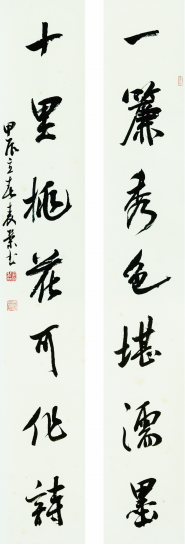 一簾秀色堪濡墨
十里桃花可作詩
甲辰立春袁業書